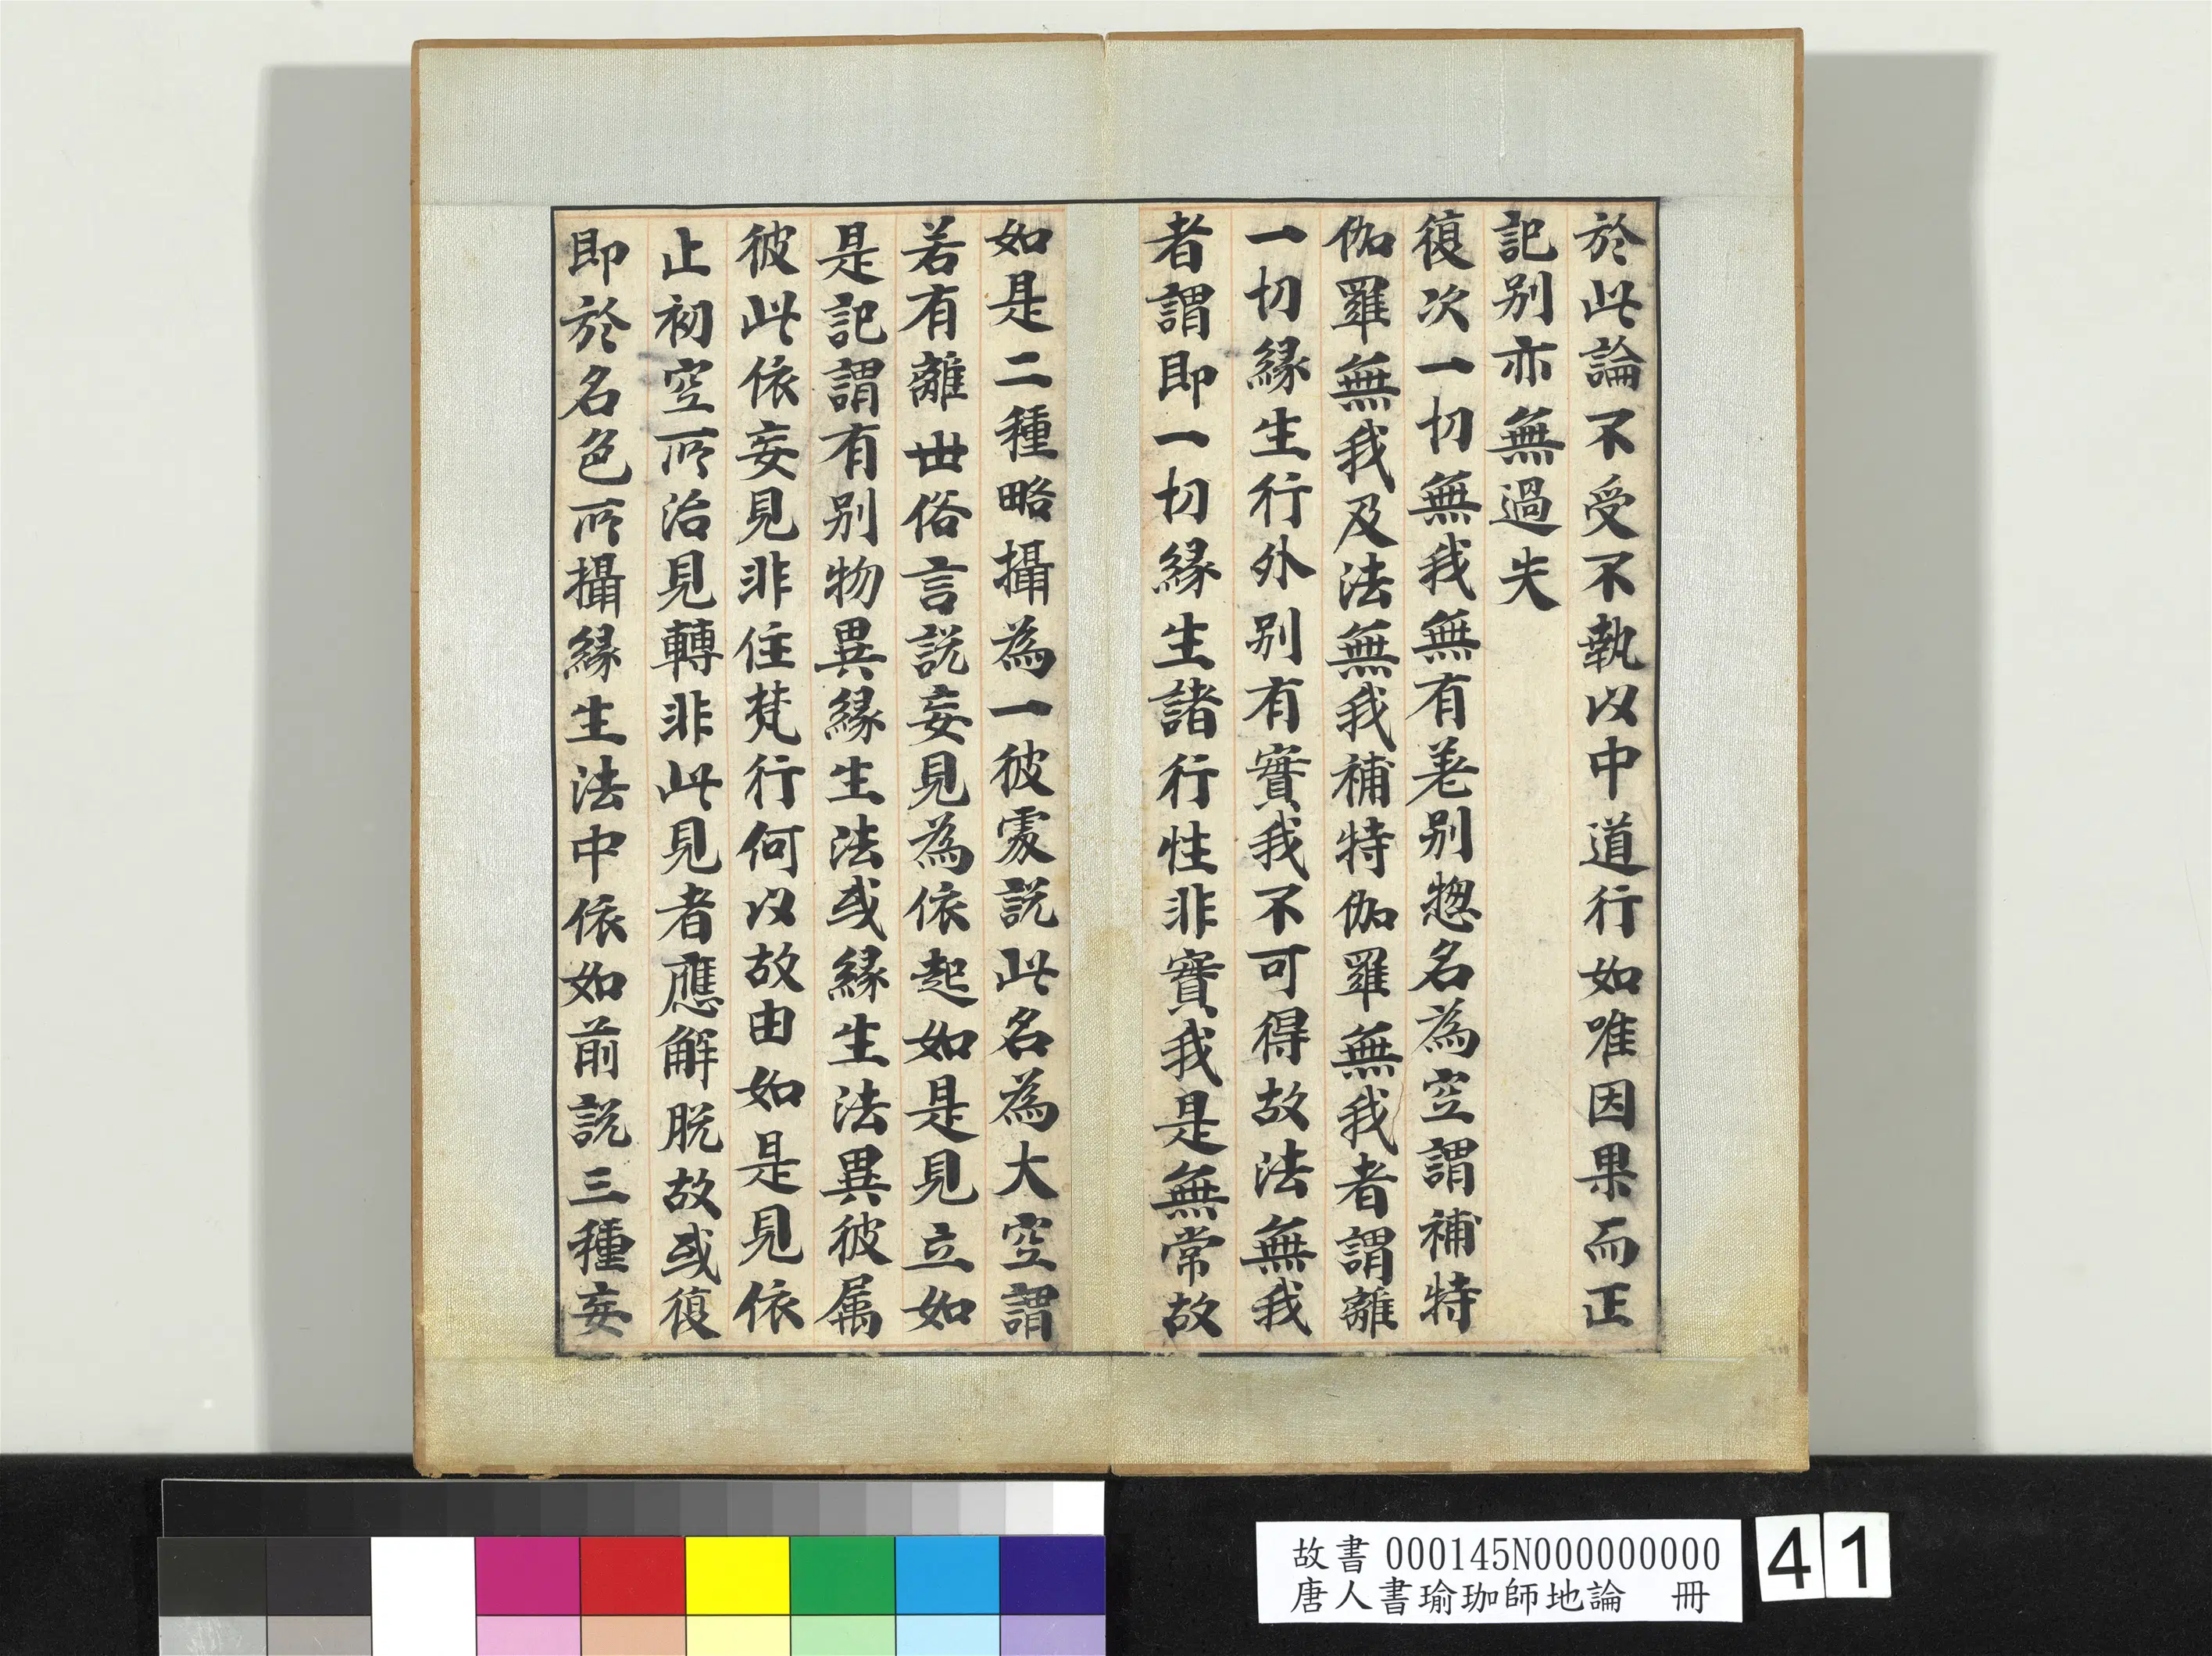 於此論不受不執以中道行如唯因果而正
記别亦無過失
復次一切無我無有差别惣名為空謂補特
伽羅無我及法無我補特伽羅無我者謂離
一切緣生行外别有實我不可得故法無我
者謂即一切緣生諸行性非實我是無常故
如是二種略攝為一彼處説此名為大空謂
若有離世俗言説妄見為依起如是見立如
是記謂有别物異緣生法或緣生法異彼属
彼此依妄見非住梵行何以故由如是見依
止初空所治見轉非此見者應解脱故或復
即於名色所攝緣生法中依如前説三種妄
故書 000145N000000000
唐人書瑜珈師地論 冊
41